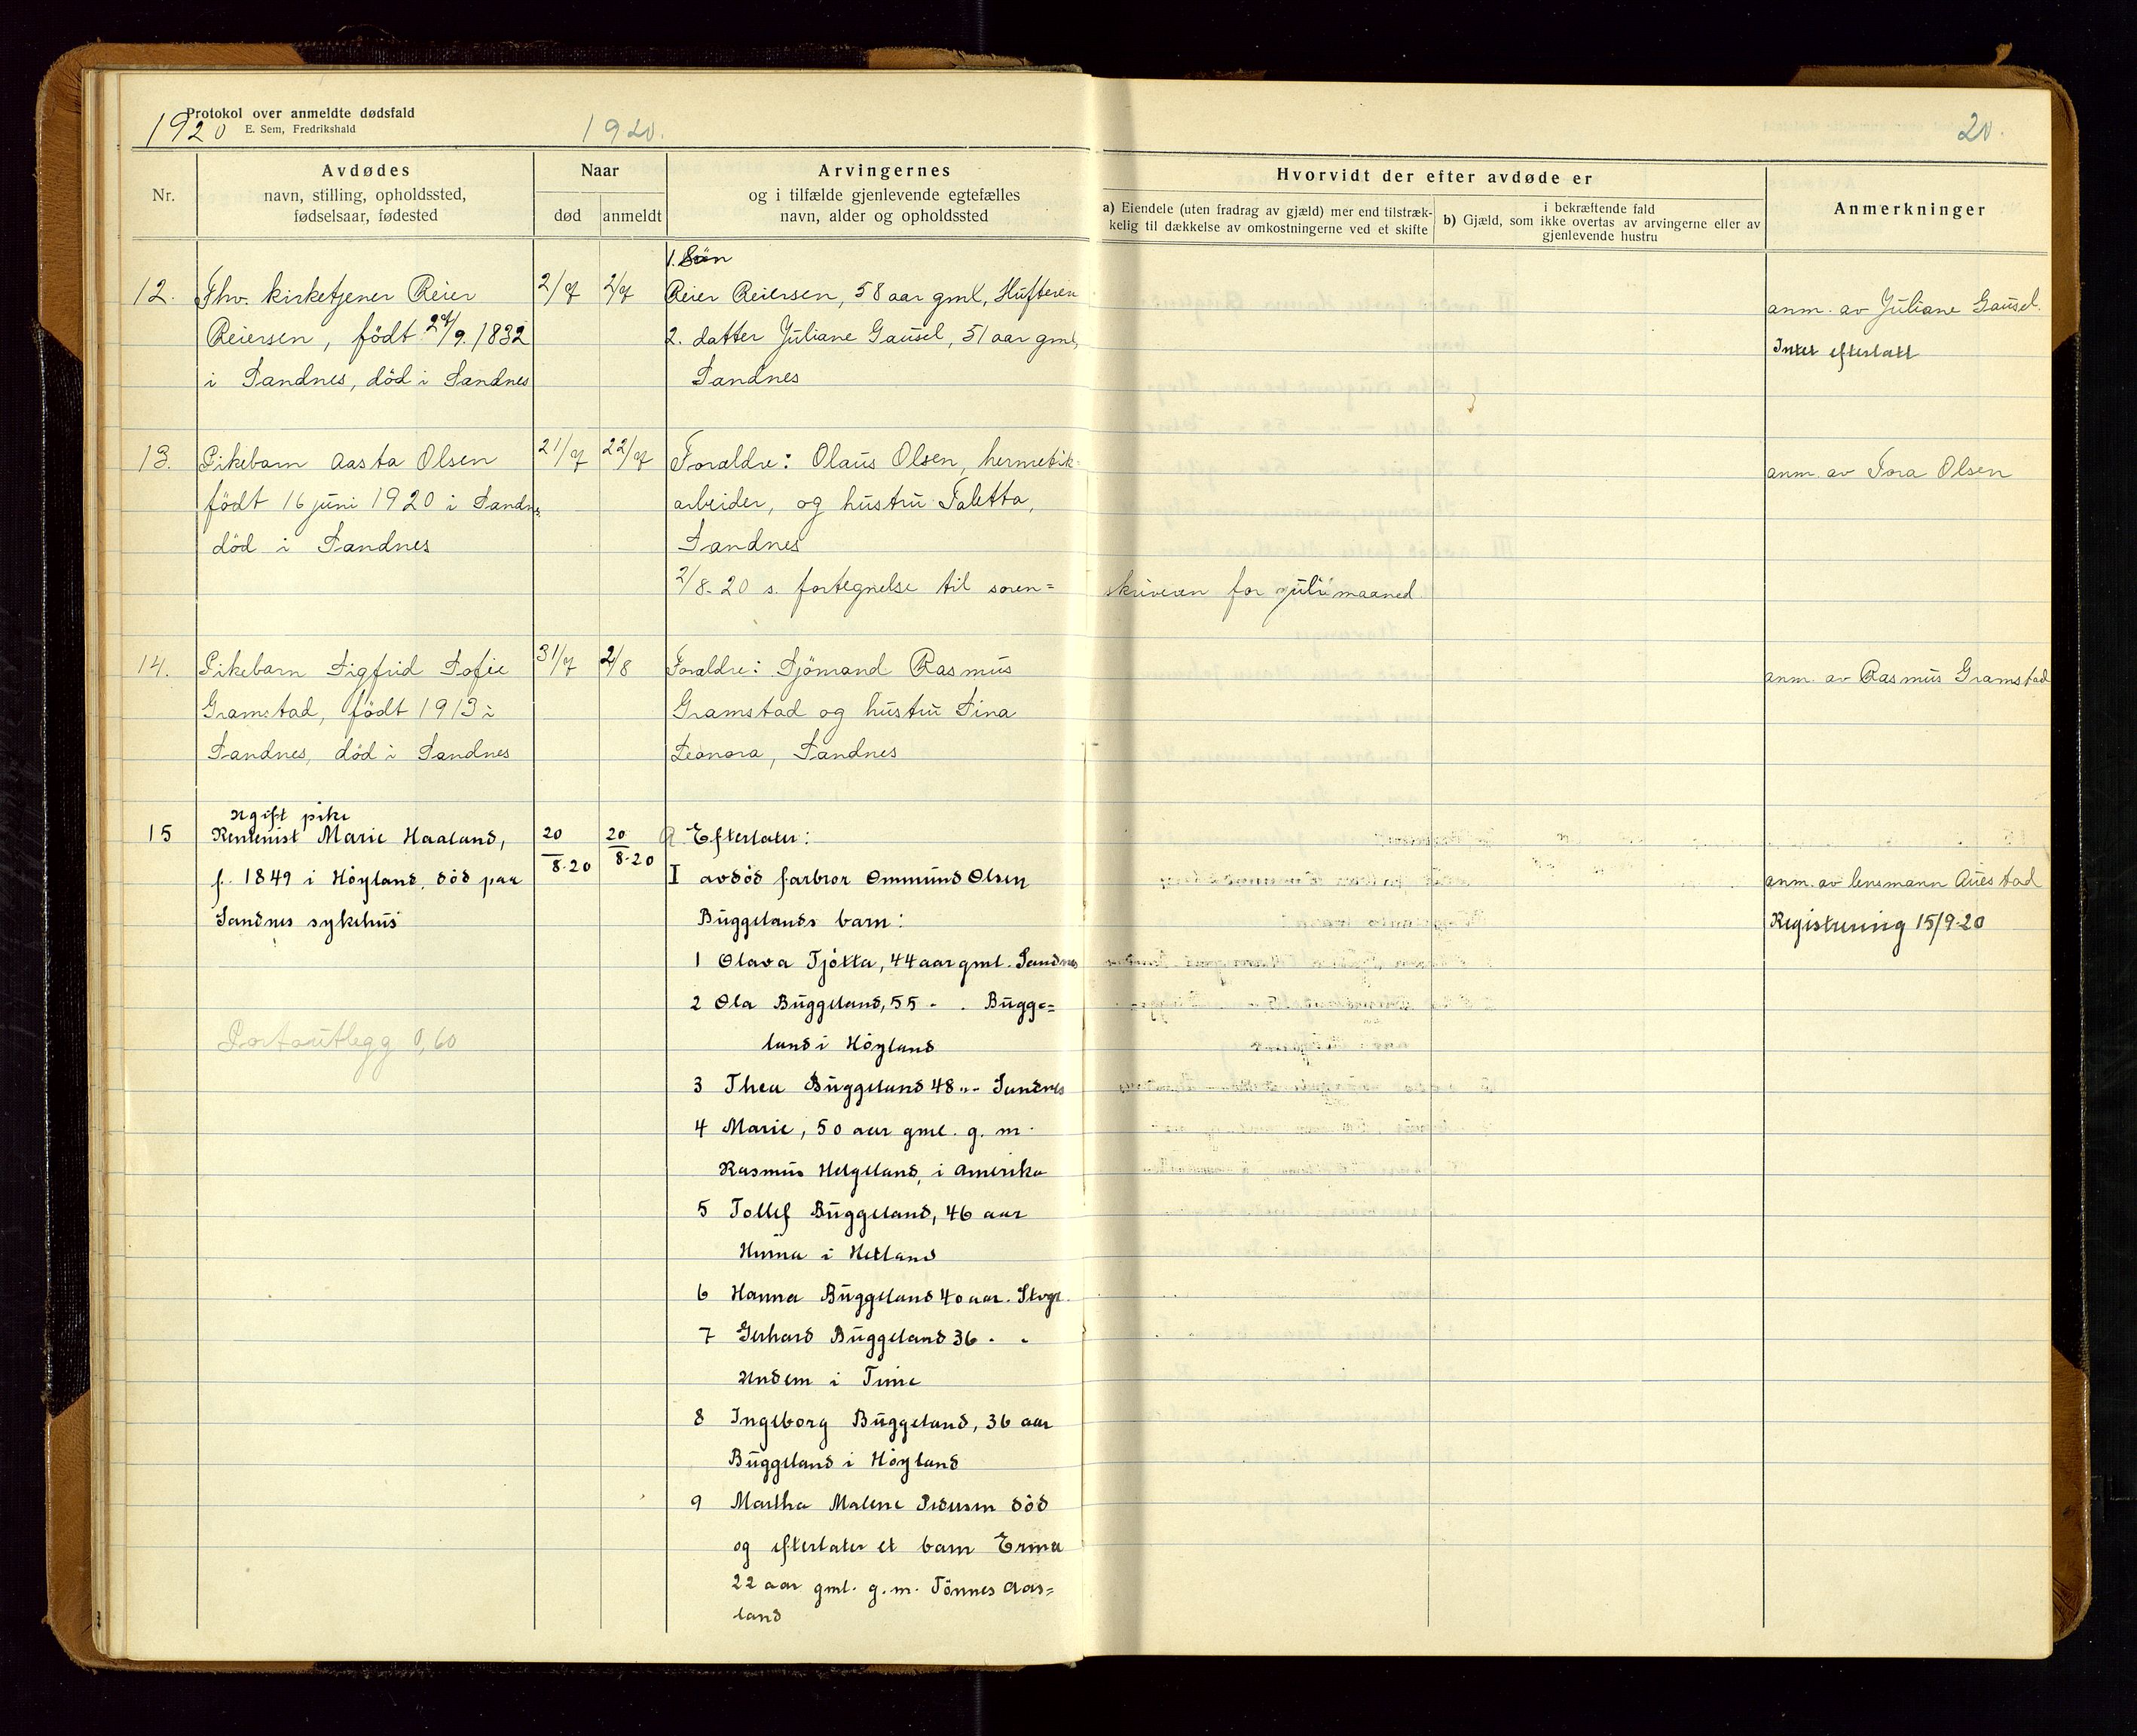 Protokol over anmeldte dødsfald
E. Sem, Fredrikshald
1920
1920.
20.
Nr.
Avdødes
navn, stilling, opholdssted,
fødselsaar, fødested
Naar
død
anmeldt
Arvingernes
og i tilfælde gjenlevende egtefælles
navn, alder og opholdssted
Hvorvidt der efter avdøde er
a) Eiendele (uten fradrag av gjæld) mer end tilstræk-
kelig til dækkelse av omkostningerne ved et skifte
i bekræftende fald
b) Gjæld, som ikke overtas av arvingerne eller av
gjenlevende hustru
Anmerkninger
12.
Fhv. kirketjener Reier
Reiersen, født 27/9. 1832
i Sandnes, død i Sandnes
2/7
2/7
1. Søn
Reier Reiersen, 58 aar gml,
2. datter Juliane Gausel, 51 aar gml,
Sandnes
anm. av Juliane Gausel.
Intet efterlatt
13.
Pikebarn Aasta Olsen
født 16 juni 1920 i Sandnes
død i Sandnes
21/7
22/7
Foraldre: Olaus Olsen, hermetik-
arbeider, og hustru Taletta,
Sandnes
anm. av Tora Olsen
2/8-20 s. fortegnelse til soren=
skriveren for juli maaned
14.
Pikebarn Sigfrid Sofie
Gramstad, født 1913 i
Sandnes, død i Sandnes
31/7
2/8
Foraldre: Sjömand Rasmus
Gramstad og hustru Sina
Leonora, Sandnes
anm. av Rasmus Gramstad
15
ugift pike
Rentenist Marie Haaland,
f. 1849 i Höyland, död paa
Sandnes sykehus
20/8-20
20/8-20
A Efterlater:
I avdöd farbror Ommund Olsen
Buggelands barn:
1 Olava Tjötta, 44 aar gml. Sandnes
2 Ola Buggeland, 55 - . Bugge=
land i Höyland
3 Thea Buggeland 48 " - Sandnes
4 Marie, 50 aar gml. g. m.
Rasmus Helgeland, i Amerika
5 Tollef Buggeland, 46 aar
i Hetland
6 Hanna Buggeland 40 aar. Stvgr.
7 Gerhard Buggeland 36 - -
Undem i Time
8 Ingeborg Buggeland, 36 aar
Buggeland i Höyland
9 Martha Malene Pedersen död
og efterlater et barn Erma
22 aar gml. g. m. Tönnes Aas=
land
anm. av lensmann Auestad
Registrering 15/9-20
Portoutlegg 0,60